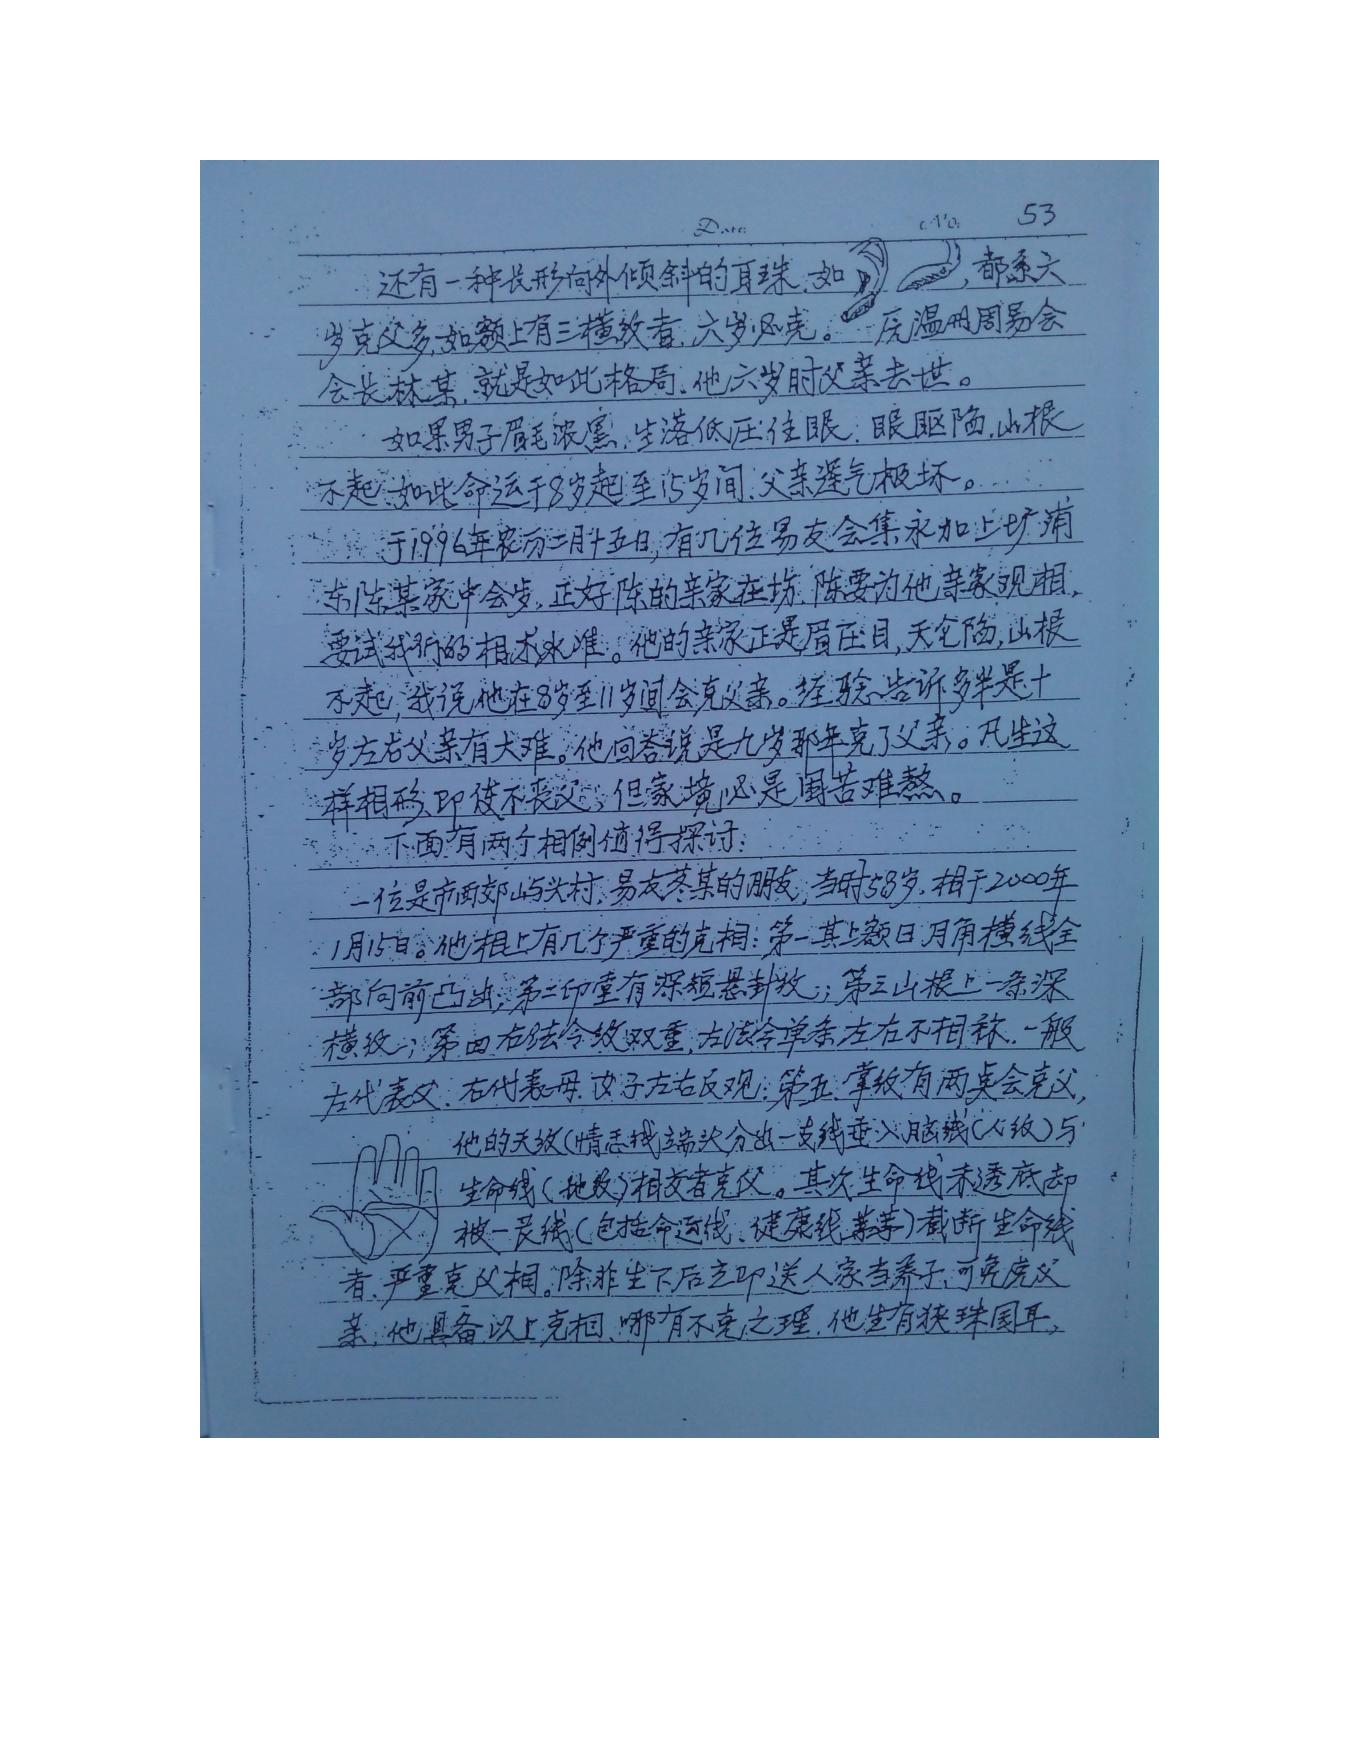 Date No. 53
还有一种长形向外倾斜的耳珠,如 ,都系六
岁克父多,如额上有三横纹者,六岁必克。 温州周易会
会长林某,就是如此格局,他六岁时父亲去世。
如果男子眉毛浓黑,生落低压住眼,眼眶陷,山根
不起,如此命运于8岁起至15岁间,父亲运气极坏。
于1996年农历二月十五日,有几位易友会集永加上圹浦
东陈某家中会步,正好陈的亲家在场,陈要为他亲家观相,
要试我们的相术水准。他的亲家正是眉压目,天仓陷,山根
不起,我说他在8岁至11岁间会克父亲。经验告诉多半是十
岁左右父亲有大难。他回答说是九岁那年克了父亲。凡生这
样相形,即使不丧父,但家境必是困苦难熬。
下面有两个相例值得探讨:
一位是市西郊屿头村,易友 某的朋友,当时58岁,相于2000年
1月15日。他相上有几个严重的克相:第一其上额日月角横线全
部向前凸出;第二印堂有深短悬针纹;第三山根上一条深
横纹;第四右法令纹双重,左法令单条左右不相称,一般
左代表父,右代表母,女子左右反观;第五,掌纹有两类会克父,
他的天纹(情志线)端头分出一支线垂入脑线(人纹)与
生命线(地纹)相交者克父。其次生命线未透底却
被一长线(包括命运线、健康线 等)截断生命线
者,严重克父相。除非生下后立即送人家当养子,可免虎父
亲,他具备以上克相,哪有不克之理,他生有狭珠围耳,